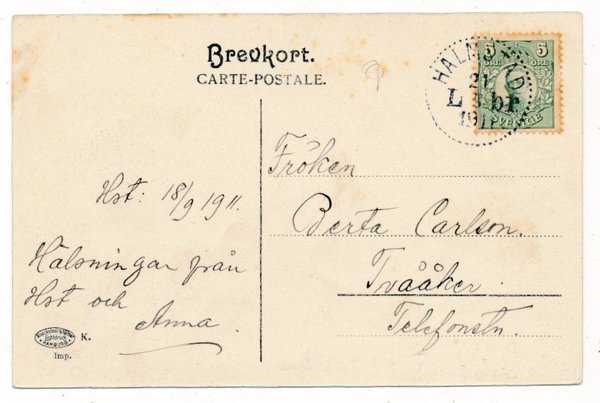 Brevkort.
CARTE-POSTALE.
HALMSTAD
21
L br
1911
5 5
ÖRE ÖRE
SVERIGE
Fröken
Berta Carlson.
Tvååker.
Telefonstn.
Hst: 18/9 1911.
Hälsningar från
Hst och
Anna.
HAMBURG
K.
Imp.